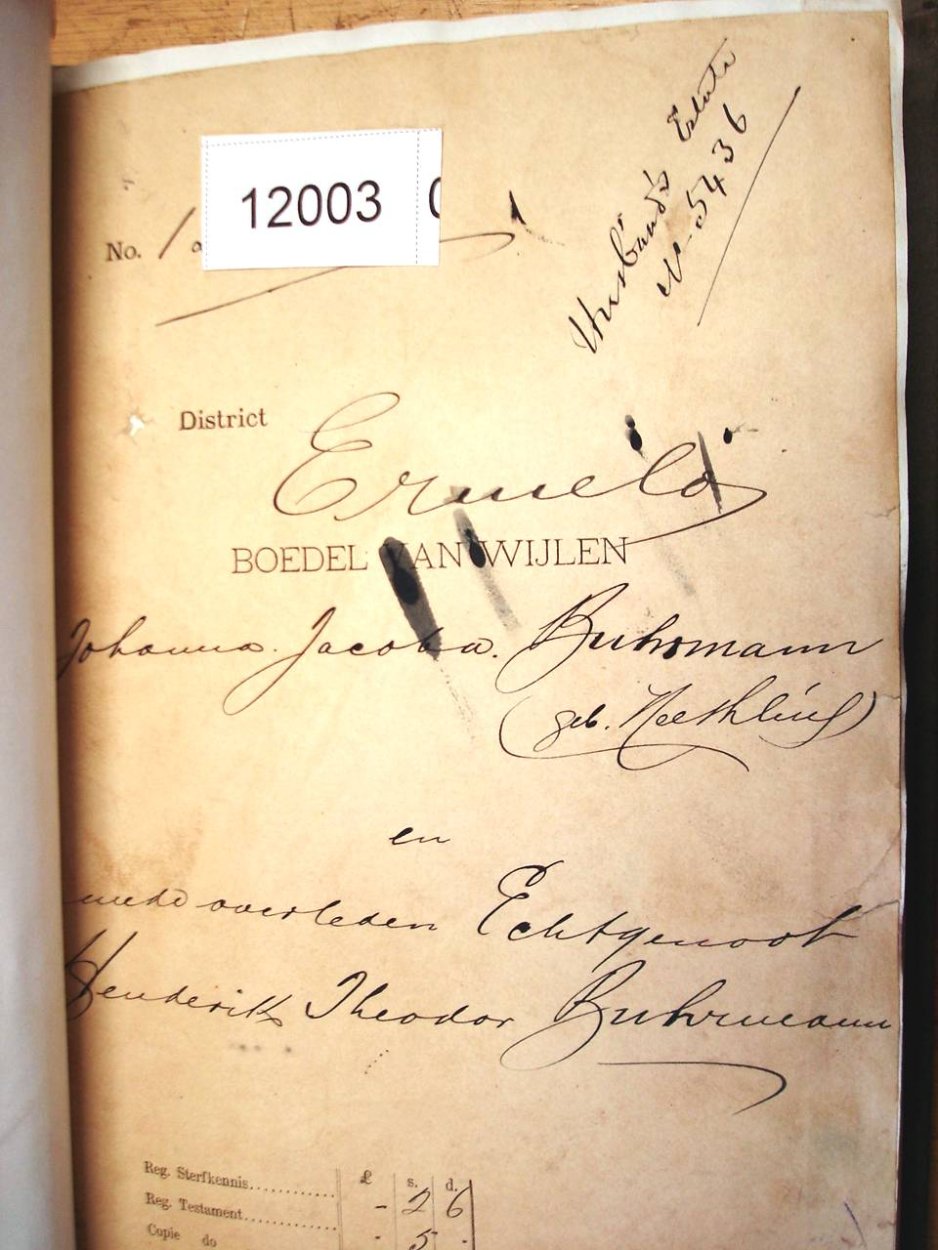 Husband's Estate
No. 5436
12003
No. 1
District Ermelo
BOEDEL VAN WIJLEN
Johanna. Jacoba. Buhrmann
(geb. Neethling)
en
mede overleden Echtgenoot
Henderik Theodor Buhrmann
£ s. d.
Reg. Sterfkennis............
Reg. Testament............... - 2 6
Copie do - 5 -